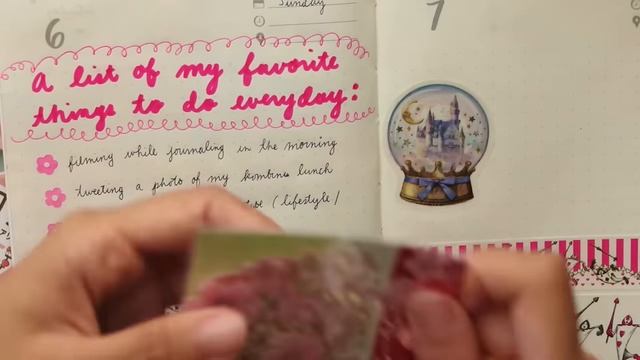 Sunday
6
7
A list of my favorite
things to do everyday:
filming while journaling in the morning
tweeting a photo of my kombini lunch
(lifestyle/